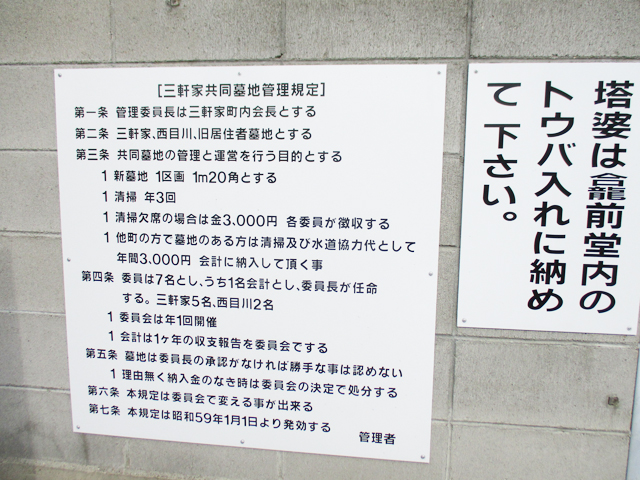 [三軒家共同墓地管理規定]
第一条 管理委員長は三軒家町内会長とする
第二条 三軒家、西目川、旧居住者墓地とする
第三条 共同墓地の管理と運営を行う目的とする
1 新墓地 1区画 1m20角とする
1 清掃 年3回
1 清掃欠席の場合は金3,000円 各委員が徴収する
1 他町の方で墓地のある方は清掃及び水道協力代として
年間3,000円 会計に納入して頂く事
第四条 委員は7名とし、うち1名会計とし、委員長が任命
する。三軒家5名、西目川2名
1 委員会は年1回開催
1 会計は1ヶ年の収支報告を委員会でする
第五条 墓地は委員長の承認がなければ勝手な事は認めない
1 理由無く納入金のなき時は委員会の決定で処分する
第六条 本規定は委員会で変える事が出来る
第七条 本規定は昭和59年1月1日より発効する
管理者
塔婆は龕前堂内の
トウバ入れに納め
て下さい。